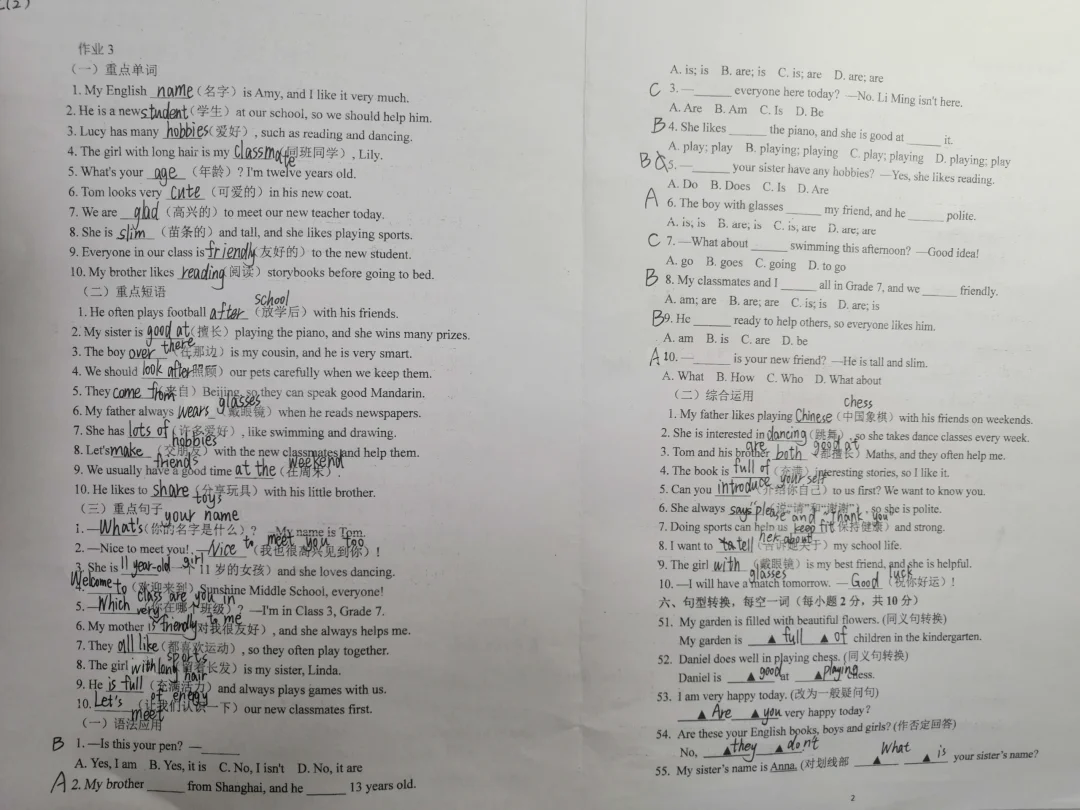 作业3
（一）重点单词
1. My English name（名字）is Amy, and I like it very much.
2. He is a new student（学生）at our school, so we should help him.
3. Lucy has many hobbies（爱好）, such as reading and dancing.
4. The girl with long hair is my classmate（同班同学）, Lily.
5. What's your age（年龄）? I'm twelve years old.
6. Tom looks very cute（可爱的）in his new coat.
7. We are glad（高兴的）to meet our new teacher today.
8. She is slim（苗条的）and tall, and she likes playing sports.
9. Everyone in our class is friendly（友好的）to the new student.
10. My brother likes reading（阅读）storybooks before going to bed.
（二）重点短语
1. He often plays football after school（放学后）with his friends.
2. My sister is good at（擅长）playing the piano, and she wins many prizes.
3. The boy over there（在那边）is my cousin, and he is very smart.
4. We should look after（照顾）our pets carefully when we keep them.
5. They come from（来自）Beijing, so they can speak good Mandarin.
6. My father always wears glasses（戴眼镜）when he reads newspapers.
7. She has lots of hobbies（许多爱好）, like swimming and drawing.
8. Let's make friends（交朋友）with the new classmates and help them.
9. We usually have a good time at the weekend（在周末）.
10. He likes to share toys（分享玩具）with his little brother.
（三）重点句子
1. —What's your name（你的名字是什么）? —My name is Tom.
2. —Nice to meet you! —Nice to meet you too（我也很高兴见到你）!
3. She is 11 year-old girl（一个 11 岁的女孩）and she loves dancing.
4. Welcome to（欢迎来到）Sunshine Middle School, everyone!
5. —Which class are you in（你在哪个班级）? —I'm in Class 3, Grade 7.
6. My mother is very friendly to me（对我很友好）, and she always helps me.
7. They all like sports（都喜欢运动）, so they often play together.
8. The girl with long hair（留着长发）is my sister, Linda.
9. He is full of energy（充满活力）and always plays games with us.
10. Let's meet（让我们认识一下）our new classmates first.
（一）语法应用
B 1. —Is this your pen? —______
A. Yes, I am B. Yes, it is C. No, I isn't D. No, it are
A 2. My brother ______ from Shanghai, and he ______ 13 years old.
A. is; is B. are; is C. is; are D. are; are
C 3. —______ everyone here today? —No. Li Ming isn't here.
A. Are B. Am C. Is D. Be
B 4. She likes ______ the piano, and she is good at ______ it.
A. play; play B. playing; playing C. play; playing D. playing; play
B 5. —______ your sister have any hobbies? —Yes, she likes reading.
A. Do B. Does C. Is D. Are
A 6. The boy with glasses ______ my friend, and he ______ polite.
A. is; is B. are; is C. is, are D. are; are
C 7. —What about ______ swimming this afternoon? —Good idea!
A. go B. goes C. going D. to go
B 8. My classmates and I ______ all in Grade 7, and we ______ friendly.
A. am; are B. are; are C. is; is D. are; is
B 9. He ______ ready to help others, so everyone likes him.
A. am B. is C. are D. be
A 10. —______ is your new friend? —He is tall and slim.
A. What B. How C. Who D. What about
（二）综合运用
1. My father likes playing Chinese chess（中国象棋）with his friends on weekends.
2. She is interested in dancing（跳舞）, so she takes dance classes every week.
3. Tom and his brother are both good at（都擅长）Maths, and they often help me.
4. The book is full of（充满）interesting stories, so I like it.
5. Can you introduce yourself（介绍你自己）to us first? We want to know you.
6. She always says "please and thank you（说“请”和“谢谢”）, so she is polite.
7. Doing sports can help us keep fit（保持健康）and strong.
8. I want to tell her about（告诉她关于）my school life.
9. The girl with glasses（戴眼镜）is my best friend, and she is helpful.
10. —I will have a match tomorrow. —Good luck（祝你好运）!
六、句型转换，每空一词（每小题 2 分，共 10 分）
51. My garden is filled with beautiful flowers. (同义句转换)
My garden is ▲ full ▲ of children in the kindergarten.
52. Daniel does well in playing chess. (同义句转换)
Daniel is ▲ good at ▲ playing chess.
53. I am very happy today. (改为一般疑问句)
▲ Are ▲ you very happy today?
54. Are these your English books, boys and girls? (作否定回答)
No, ▲ they ▲ don't
55. My sister's name is Anna. (对划线部 What ▲ ▲ is your sister's name?
2